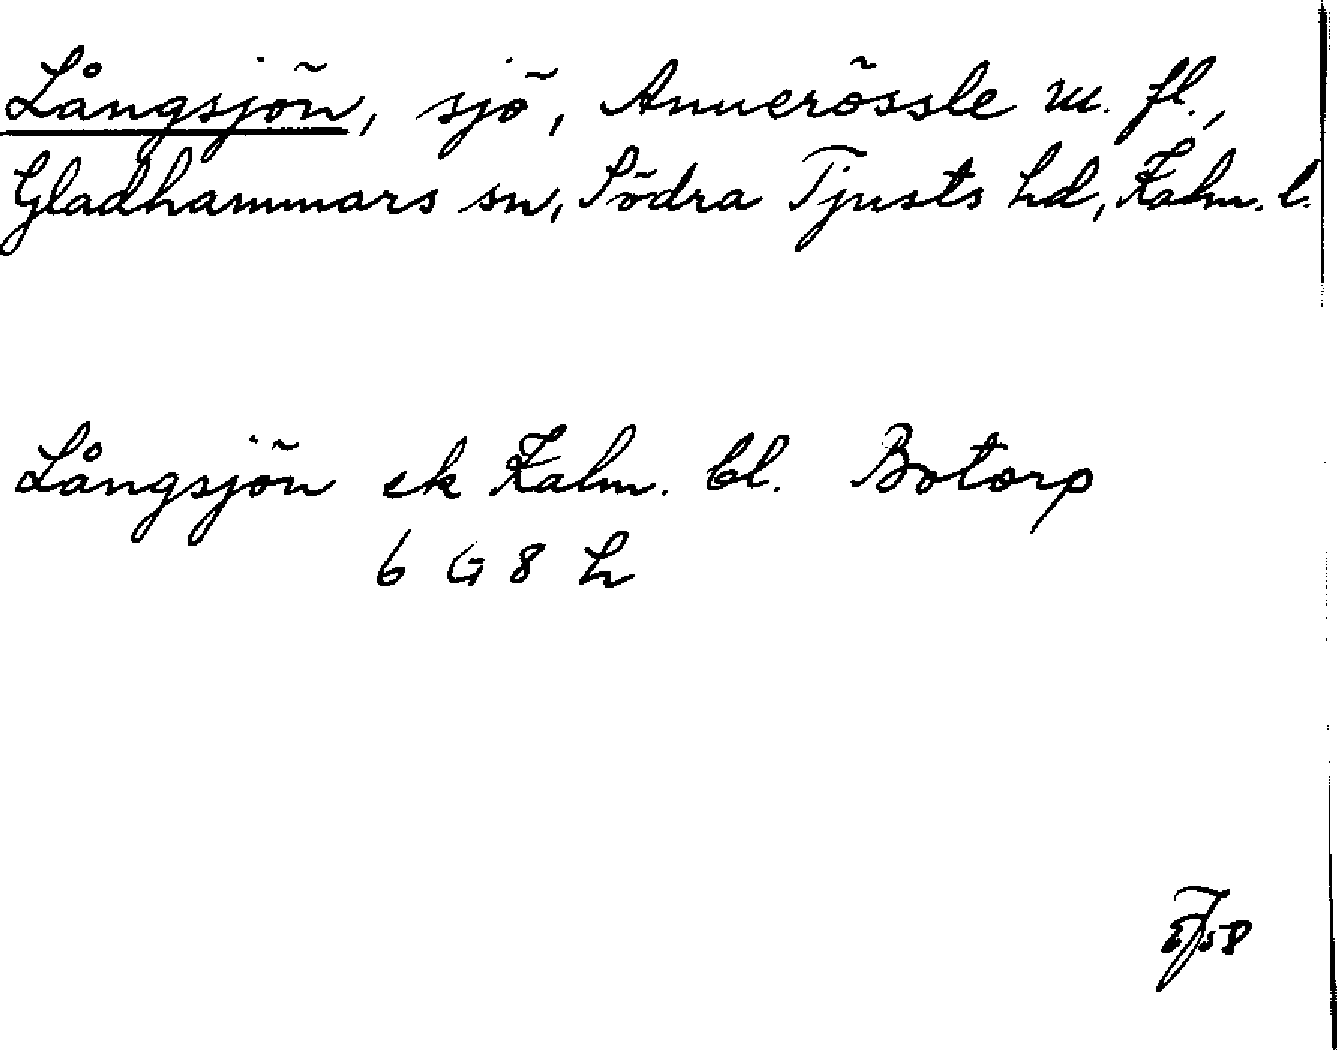 Långsjön, sjö, Annerössle m. fl.,
Gladhammars sn, Södra Tjusts hd, Kalm. l.
Långsjön ek Kalm. bl. Botorp
6 G 8 h